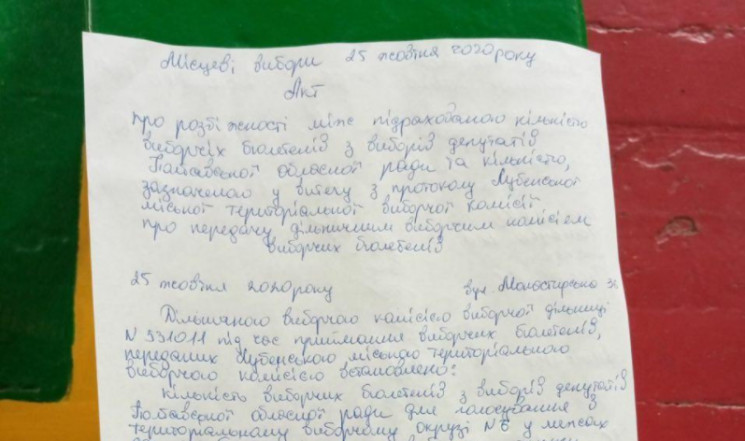 Місцеві вибори 25 жовтня 2020 року
Акт
про розбіжності між підрахованою кількістю
виборчіх бюлетенів з виборів депутатів
Полтавської обласної ради та кількістю,
зазначеною у витягу з протоколу Лубенської
міської територіальної виборчої комісії
про передачу дільничним виборчим комісіям
виборчих бюлетенів
25 жовтня 2020 року вул.
Дільничною виборчою комісією виборчої дільниці
N 531011 під час приймання виборчих бюлетенів,
переданих Лубенською міською територіальною
виборчою комісією встановлено:
Кількість виборчих бюлетенів з виборів депутатів
Полтавської обласної ради для голосування з
територіальному виборчому окрузі №6 у межах